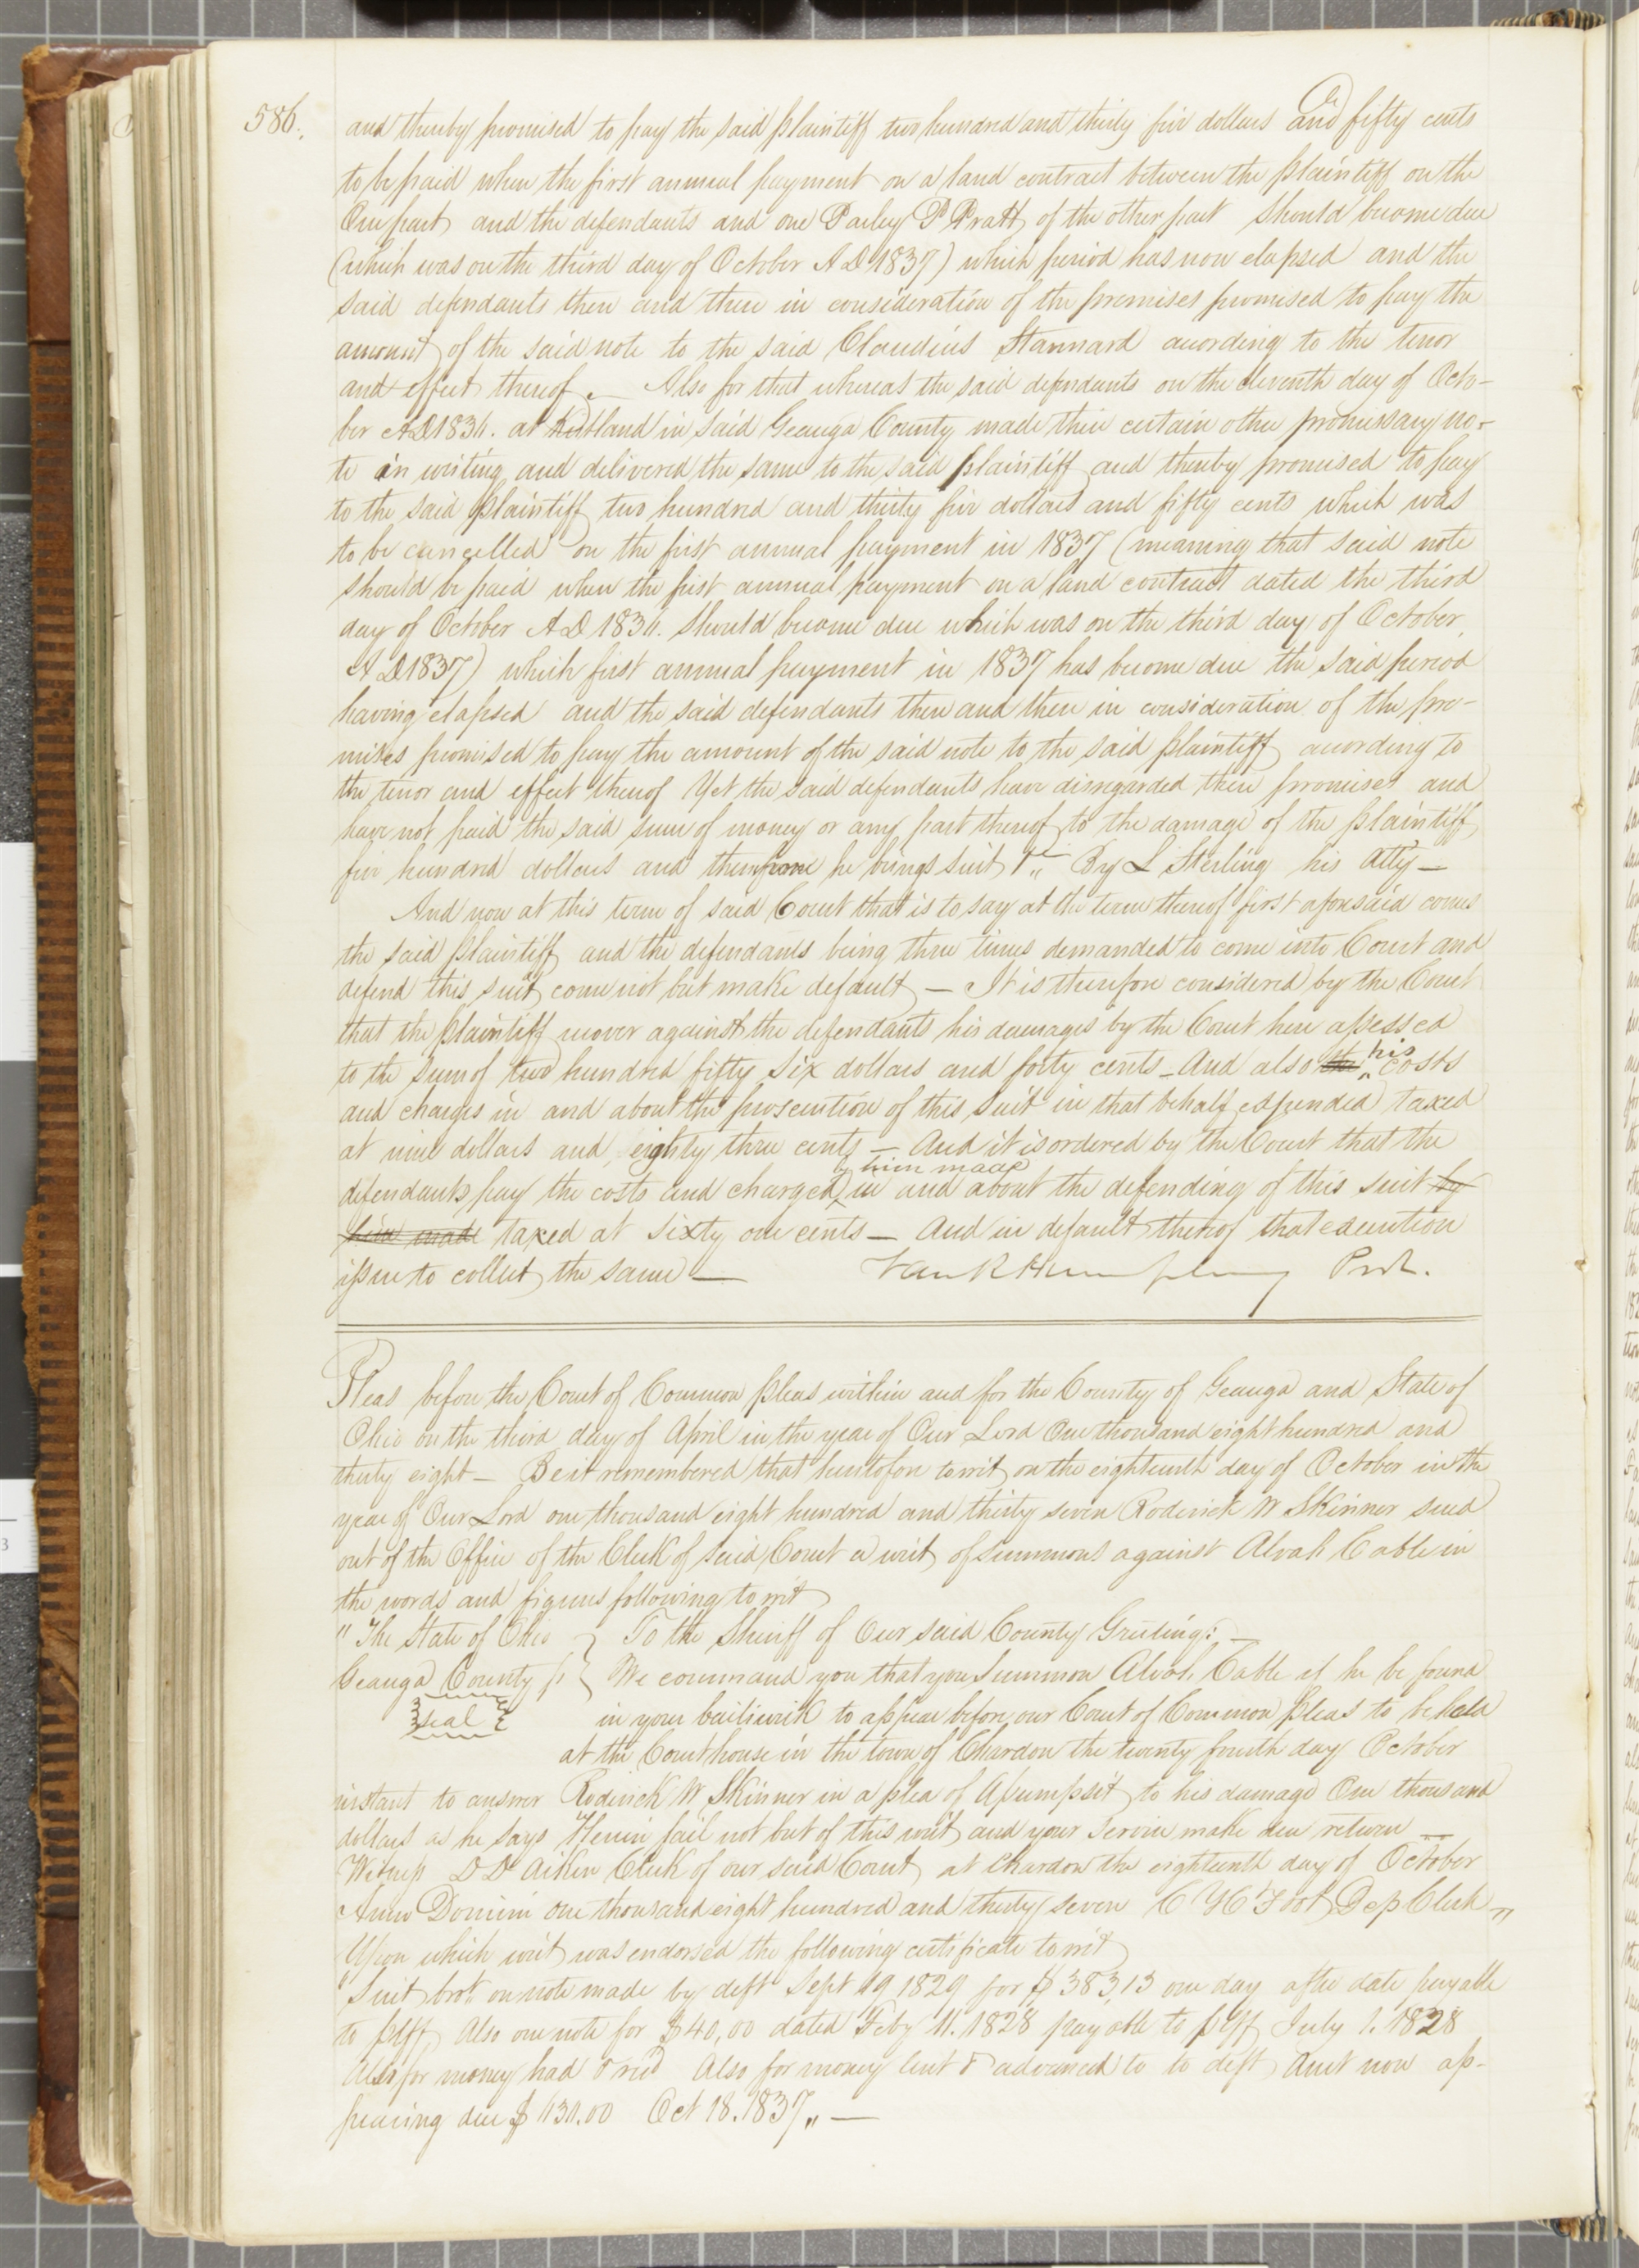 586.
and thereby promised to pay the said plaintiff two hundred and thirty five dollars and fifty cents
to be paid when the first annual payment on a land contract between the plaintiff on the
One part and the defendants and one Parley P Pratt of the other part should become due
(which was on the third day of October A D 1837) which period has now elapsed and the
said defendants then and there in consideration of the premises promised to pay the
amount of the said note to the said Claudius Stannard according to the tenor
and effect thereof. Also for that whereas the said defendants on the eleventh day of Octo-
ber AD 1836. at Kirtland in said Geauga County made their certain other promissary no-
te in writing and delivered the same to the said plaintiff and thereby promised to pay
to the said plaintiff two hundred and thirty five dollars and fifty cents which was
to be cancelled on the first annual payment in 1837 (meaning that said note
should be paid when the first annual payment on a land contract dated the third
day of October A D 1836. should become due which was on the third day of October
A D 1837) which first annual payment in 1837 has become due the said period
having elapsed and the said defendants then and there in consideration of the pre-
mises promised to pay the amount of the said note to the said plaintiff according to
the tenor and effect thereof Yet the said defendants have disregarded their promises and
have not paid the said sum of money or any part thereof to the damage of the plaintiff
five hundred dollars and therefore he brings suit &c" By L Sterling his Atty —
And now at this term of said Court that is to say at the term thereof first aforesaid comes
the said plaintiff and the defendants being three times demanded to come into Court and
defend this suit come not but make default — It is therefore considered by the Court
that the plaintiff recover against the defendants his damages by the Court here assessed
to the sum of two hundred fifty six dollars and forty cents – And also the his costs
and charges in and about the prosecution of this suit in that behalf expended taxed
at nine dollars and eighty three cents — And it is ordered by the Court that the
defendants pay the costs and charges by him made in and about the defending of this suit by
him made taxed at sixty one cents — And in default thereof that execution
issue to collect the same — Van R Humphrey Prst.
Pleas before the Court of Common pleas within and for the County of Geauga and State of
Ohio on the third day of April in the year of Our Lord One thousand eight hundred and
thirty eight — Be it remembered that heretofore towit on the eighteenth day of October in the
year of Our Lord one thousand eight hundred and thirty seven Roderick W Skinner sued
out of the Office of the Clerk of said Court a writ of summons against Alvah Cable in
the words and figures following to wit
"The State of Ohio } To the Sheriff of Our said County Greeting: —
Geauga County ss } We command you that you summon Alvah Cable if he be found
seal in your bailiwick to appear before our Court of Common pleas to be held
at the Court house in the town of Chardon the twenty fourth day October
instant to answer Roderick W Skinner in a plea of Assumpsit to his damage One thousand
dollars as he says Herein fail not but of this writ and your service make due return —
Witness D D Aiken Clerk of our said Court at Chardon the eighteenth day of October
Anno Domini one thousand eight hundred and thirty seven C H Foot Dep Clerk "
Upon which writ was endorsed the following certificate to wit
"Suit brot on note made by deft Sept 19 1829 for $383,13 one day after date payable
to plff Also one note for $40,00 dated Feby 11. 1828 payable to plff July 1. 1828
Also for money had & recd Also for money lent & advanced to to deft Amt now ap-
pearing due $ 630.00 Oct 18. 1837" —